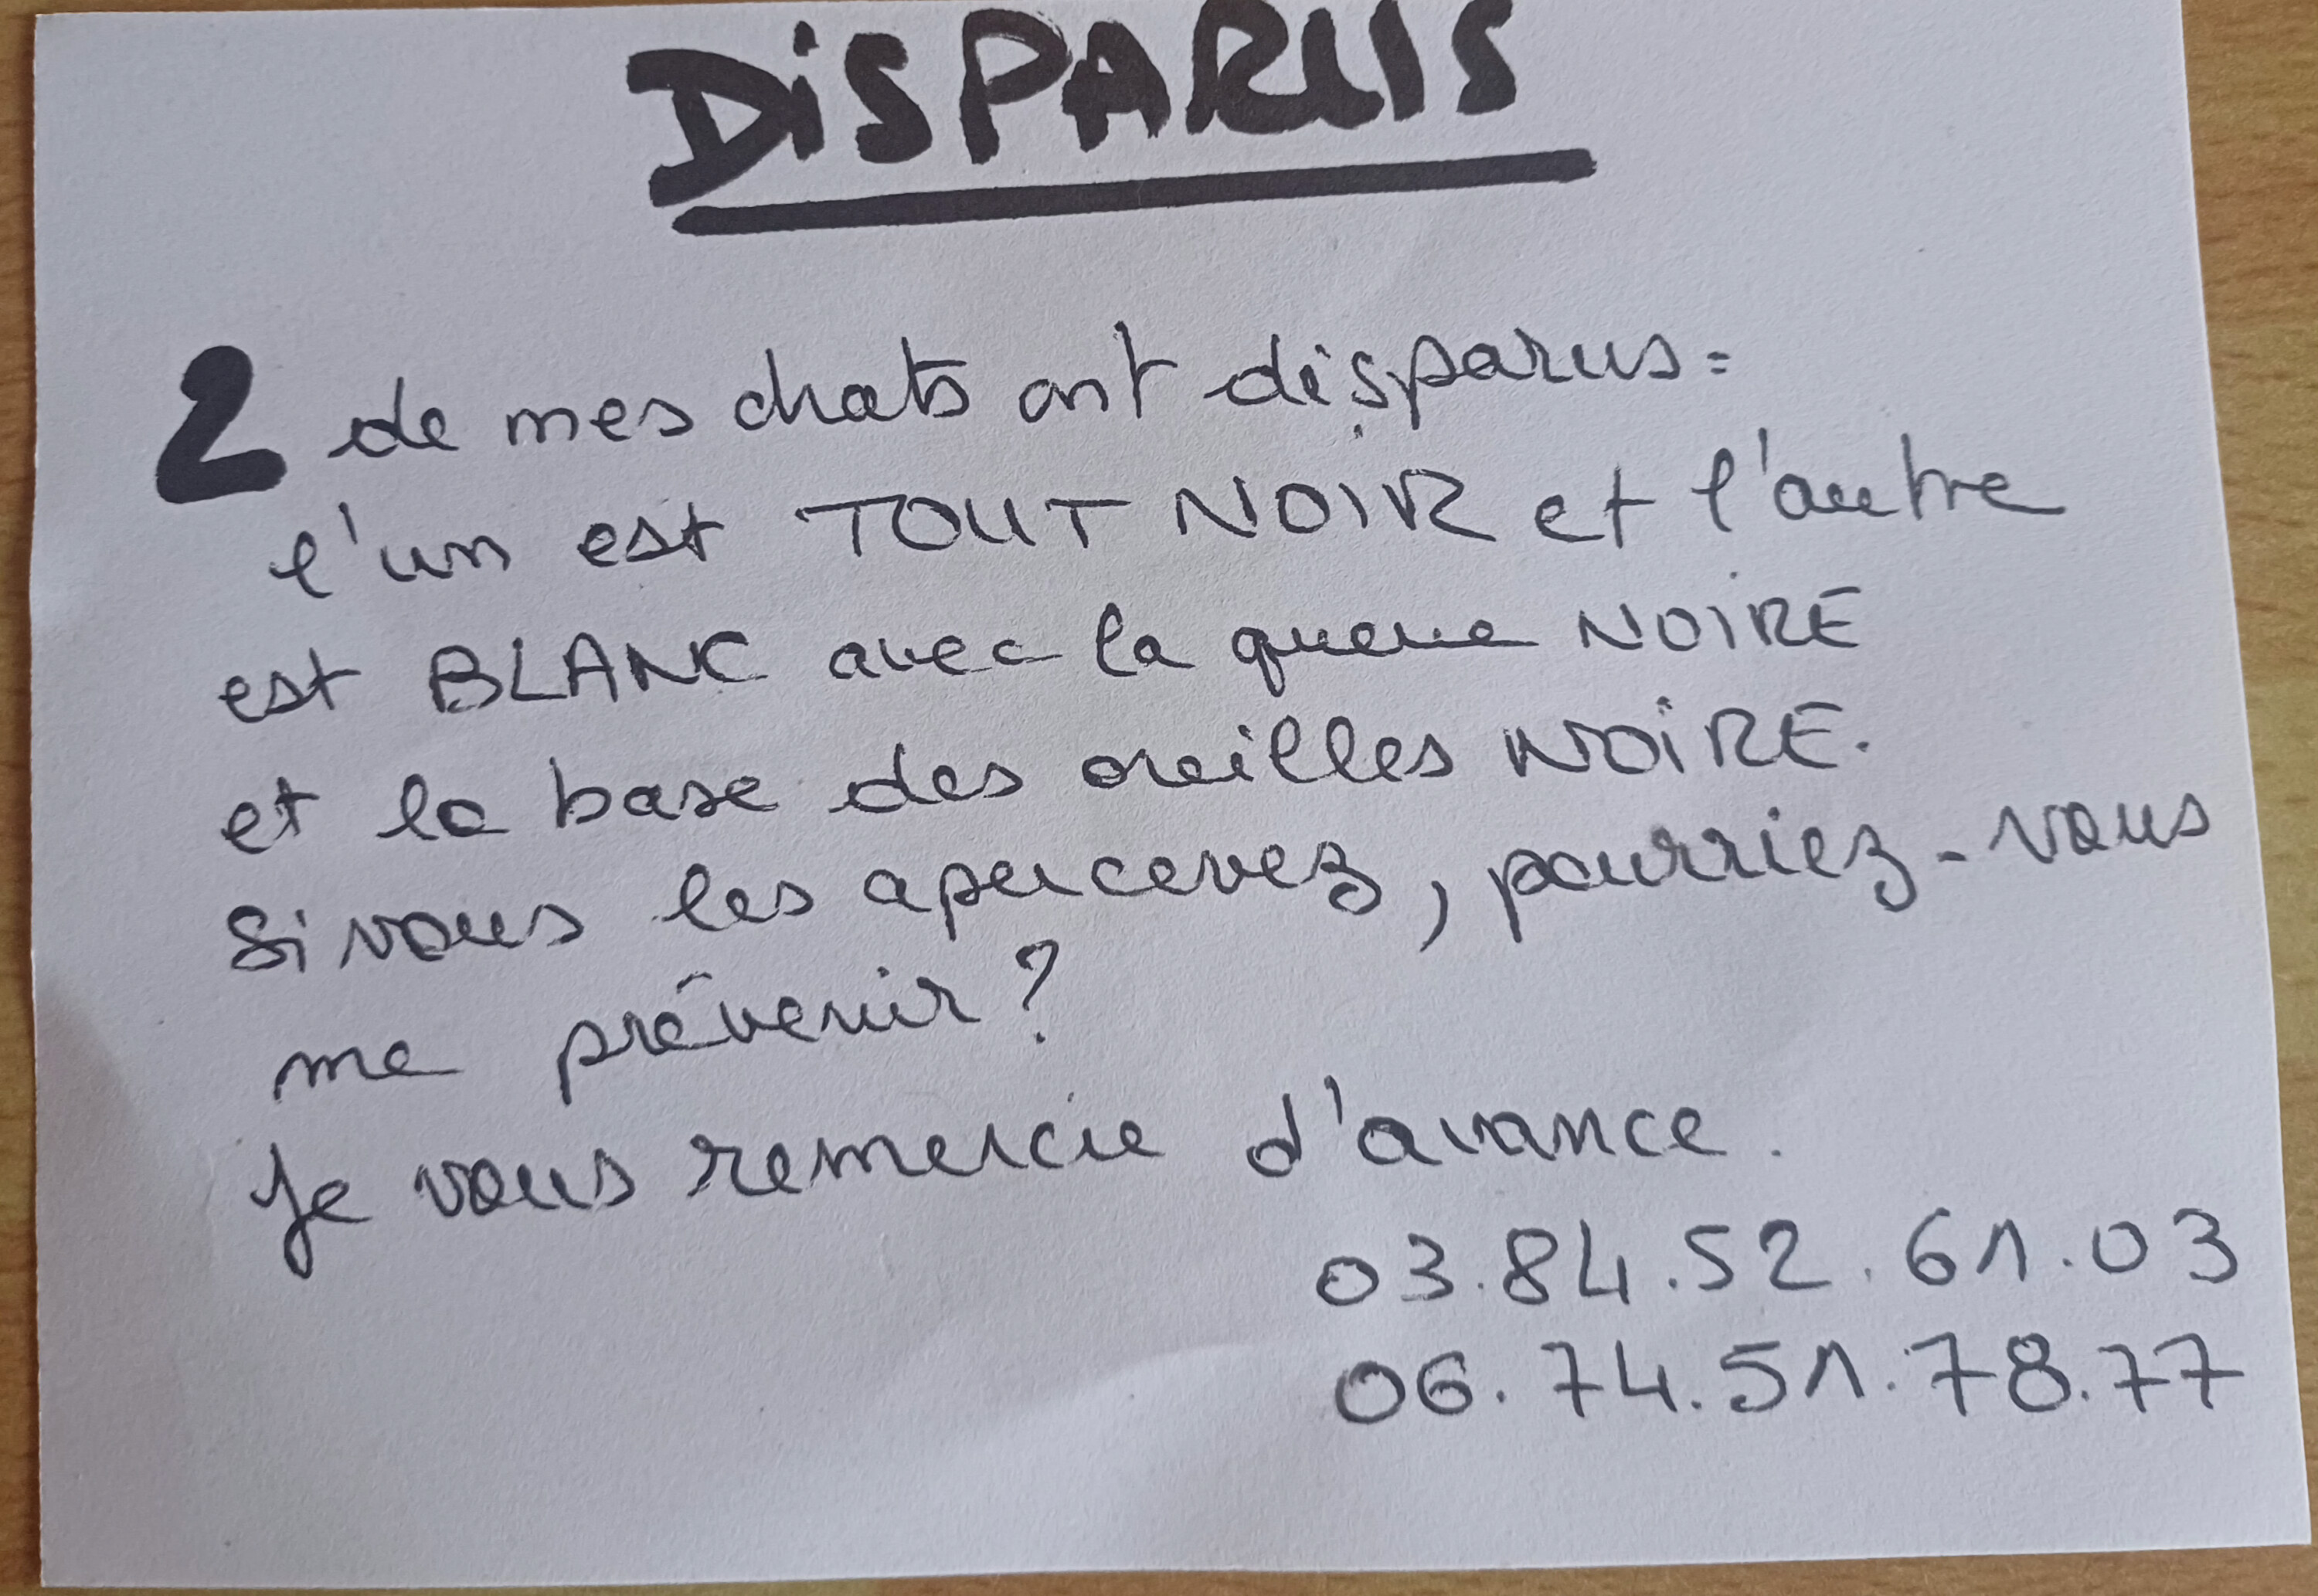 DiSPARUS
2 de mes chats ont disparus =
l'un est TOUT NOIR et l'autre
est BLANC avec la queue NOIRE
et la base des oreilles NOiRE.
Si vous les apercevez, pourriez-vous
me prévenir ?
Je vous remercie d'avance.
03.84.52.61.03
06.74.51.78.77